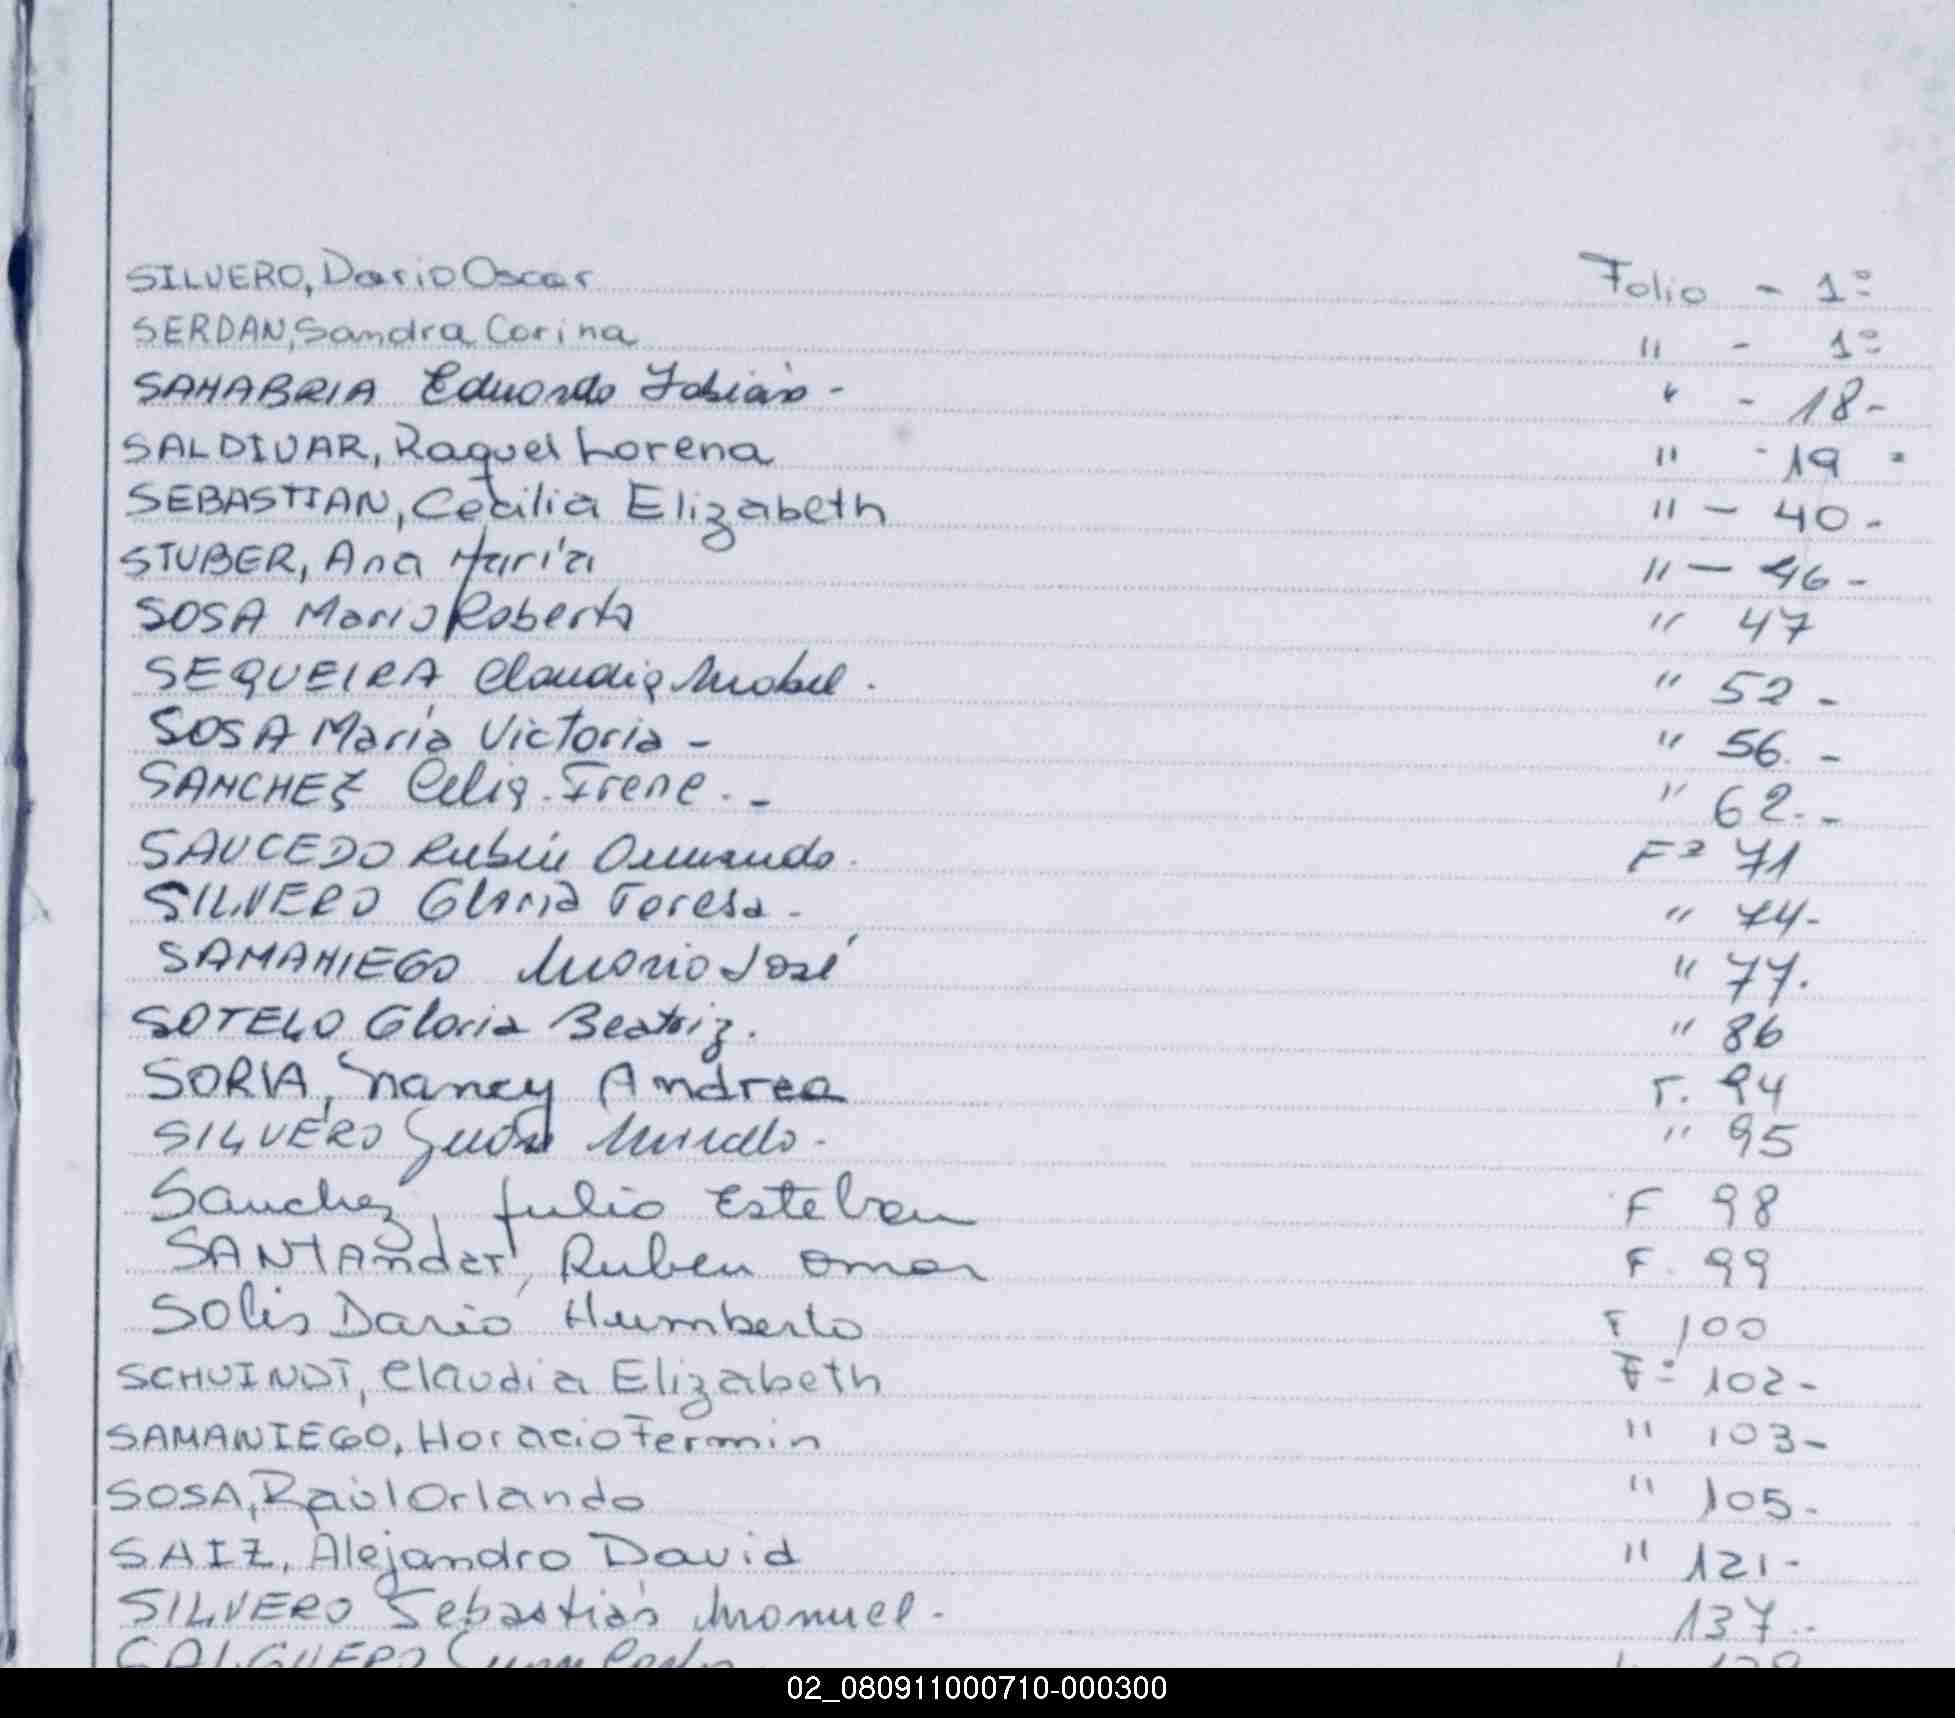 SILVERO, Dario Oscar Folio - 1º
SERDAN, Sandra Corina " - 1º
SANABRIA Eduardo Fabián - " - 18-
SALDIVAR, Raquel Lorena " - 19 -
SEBASTIAN, Cecilia Elizabeth " - 40 -
STUBER, Ana María " - 46 -
SOSA Mario Roberto " 47
SEQUEIRA Claudia Mabel . " 52 -
SOSA María Victoria - " 56. -
SANCHEZ Celia Irene. - " 62. -
SAUCEDO Rubén Armando. Fº 71
SILVERO Gloria Teresa - " 74-
SAMANIEGO Mario José " 77.
SOTELO Gloria Beatriz. " 86
SORIA, Nancy Andrea F. 94
SILVERO " 95
Sanchez, Julio Esteban F 98
SANTAnder, Ruben Omar F. 99
SOLis Dario Humberto F 100
SCHUINDT, Claudia Elizabeth Fº 102-
SAMANIEGO, Horacio Fermin " 103-
SOSA, Raúl Orlando " 105-
SAIZ, Alejandro David " 121-
SILVERO Sebastián Manuel - 137 -
02_080911000710-000300